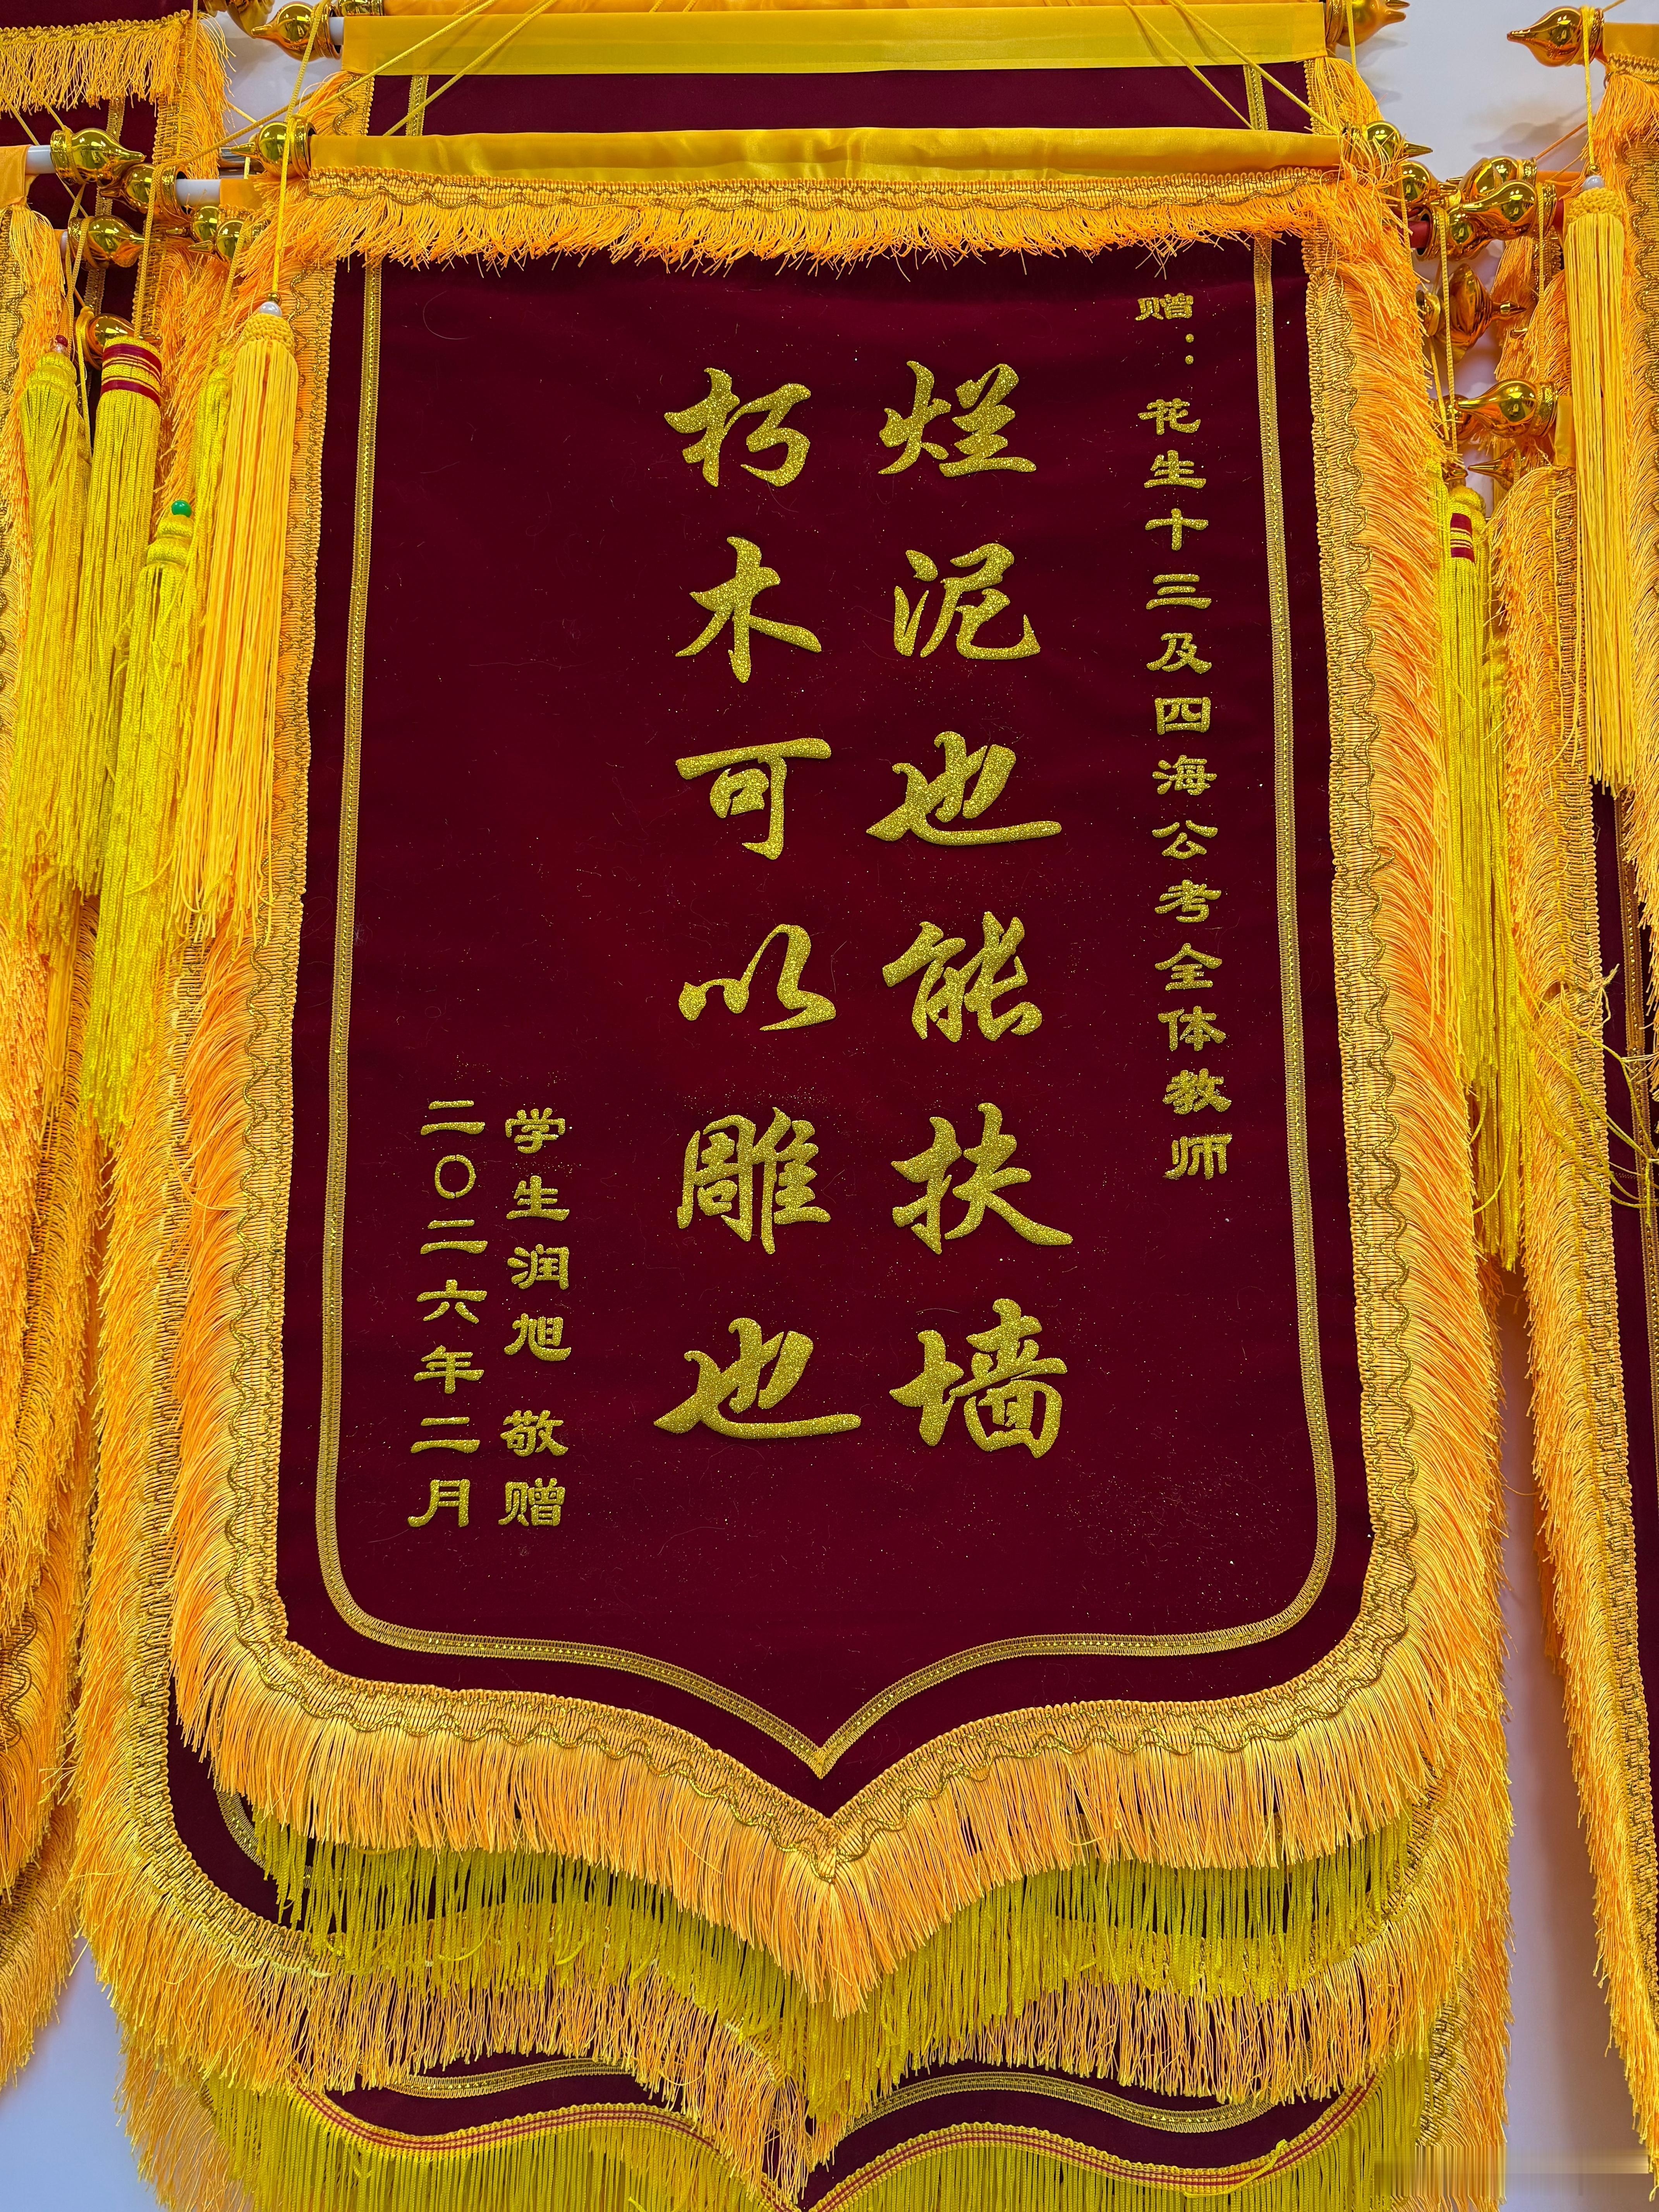 赠：花生十三及四海公考全体教师
烂泥也能扶墙
朽木可以雕也
学生润旭 敬赠
二〇二六年二月